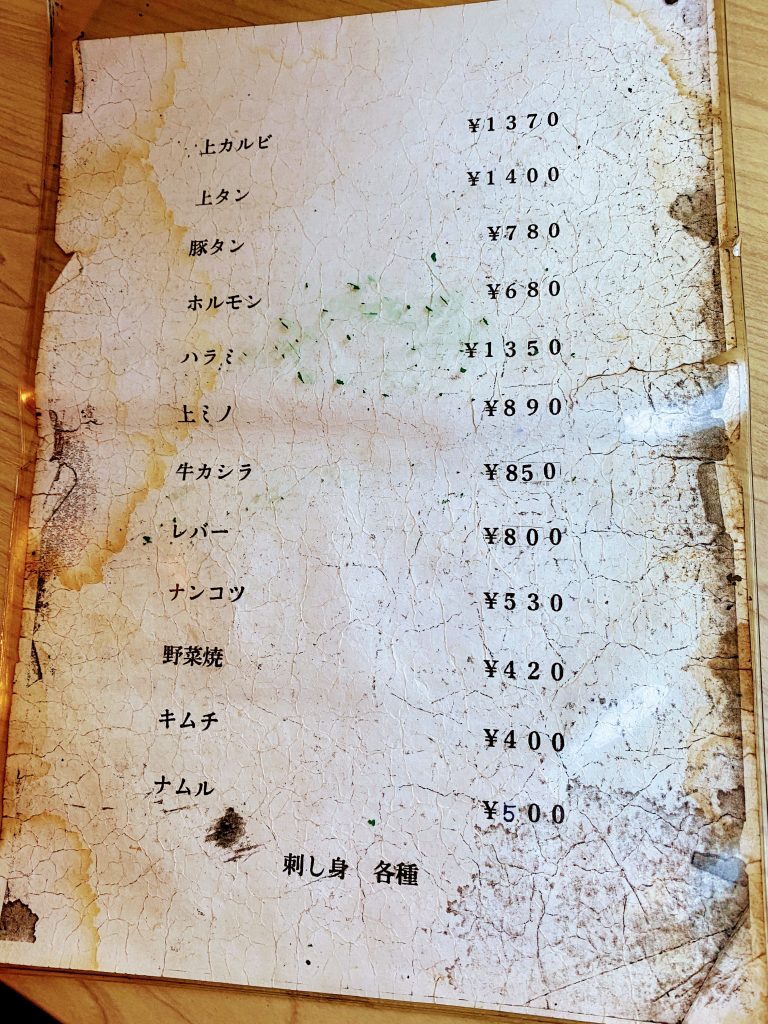 上カルビ ¥1370
上タン ¥1400
豚タン ¥780
ホルモン ¥680
ハラミ ¥1350
上ミノ ¥890
牛カシラ ¥850
レバー ¥800
ナンコツ ¥530
野菜焼 ¥420
キムチ ¥400
ナムル ¥500
刺し身 各種